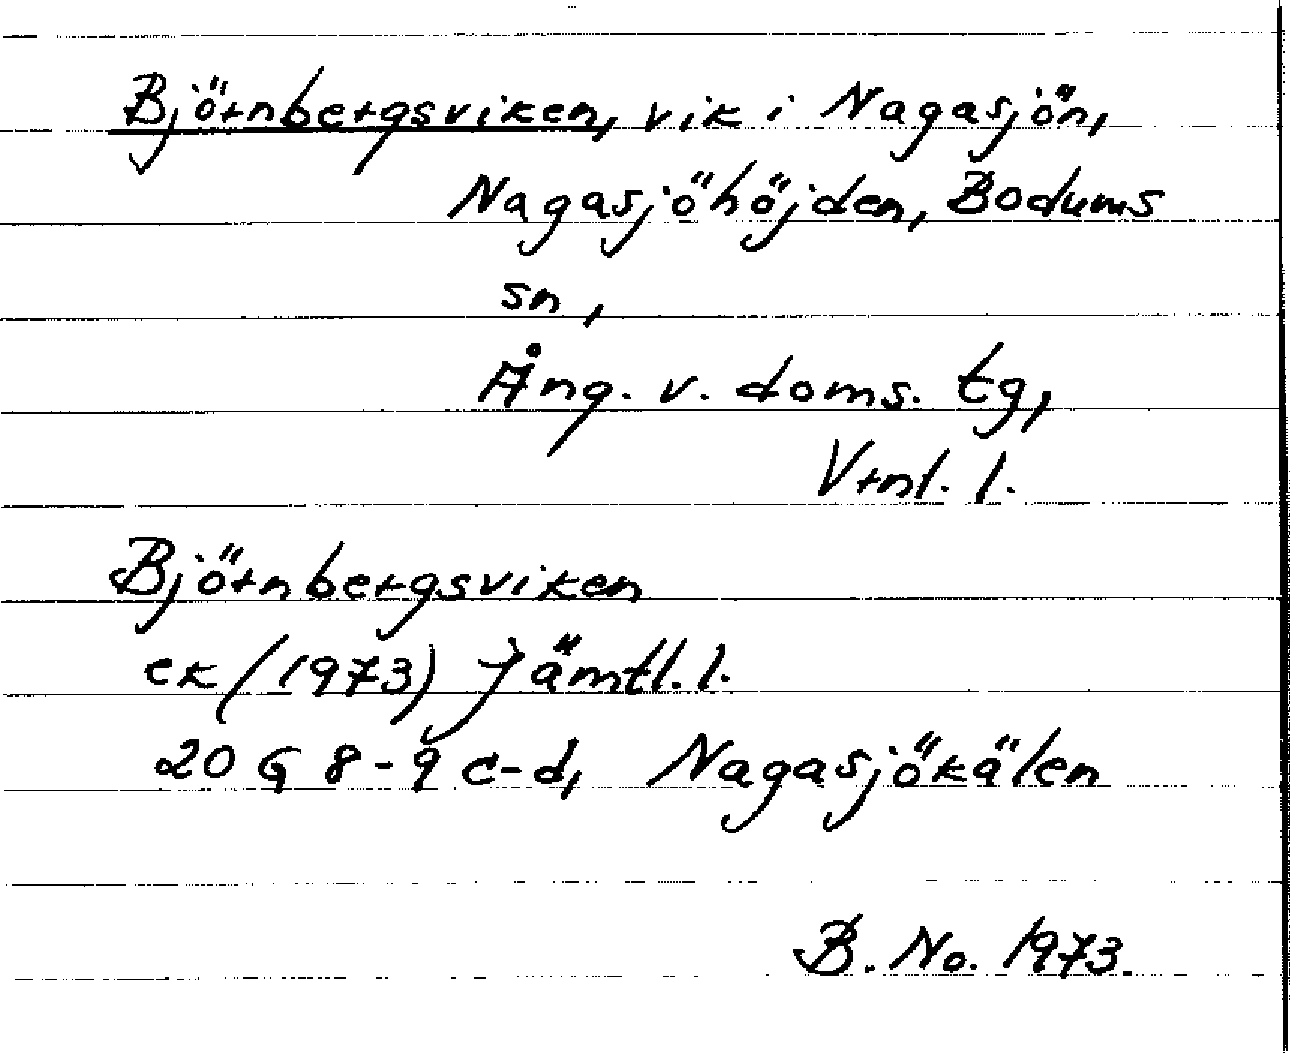 Björnbergsviken, vik i Nagasjön,
Nagasjöhöjden, Bodums
sn,
Ång. v. doms. tg,
Vrnl. l.
Björnbergsviken
ek (1973) Jämtl. l.
20 G 8-9 c-d, Nagasjökälen
B. No. 1973.